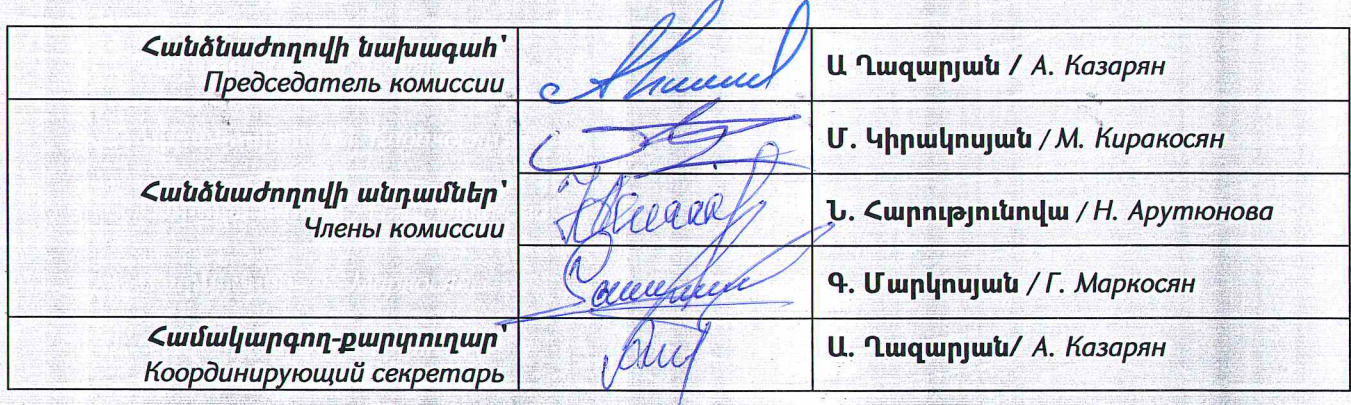 Հանձնաժողովի նախագահ՝
Председатель комиссии
Ա Ղազարյան / А. Казарян
Մ. Կիրակոսյան / М. Киракосян
Հանձնաժողովի անդամներ՝
Члены комиссии
Ն. Հարությունովա / Н. Арутюнова
Գ. Մարկոսյան / Г. Маркосян
Համակարգող-քարտուղար՝
Координирующий секретарь
Ա. Ղազարյան/ А. Казарян